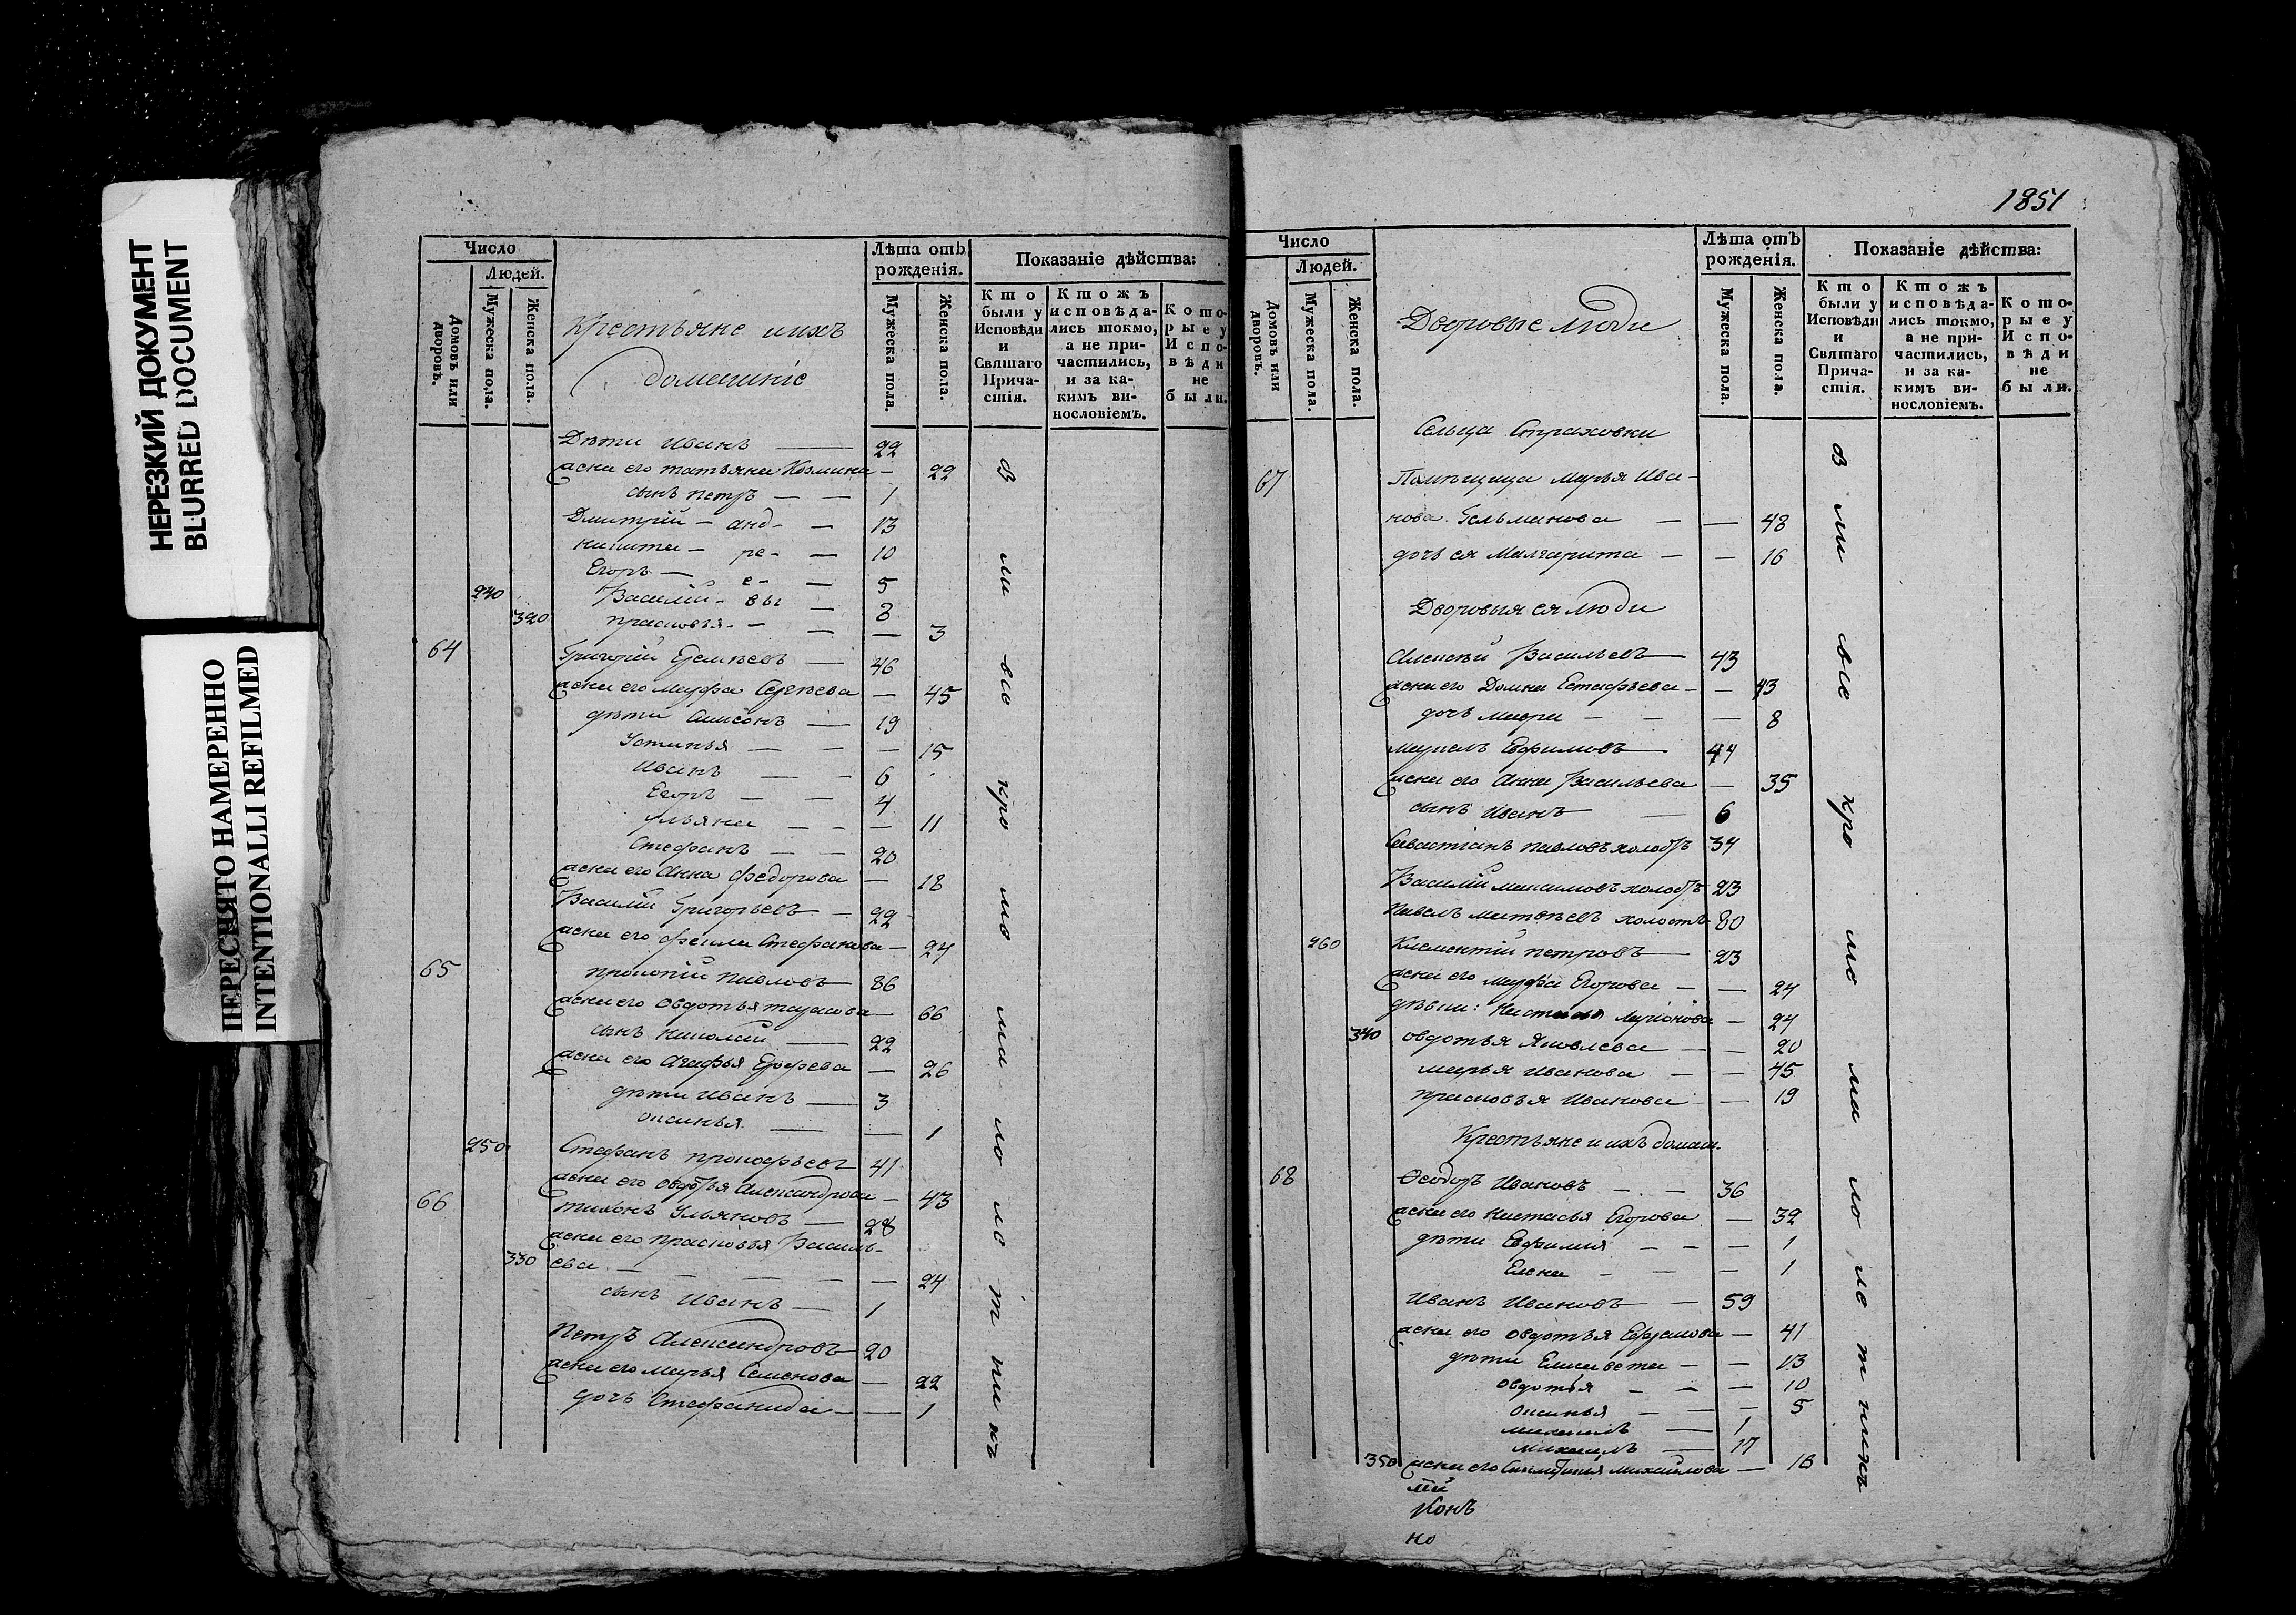 НЕРЕЗКИЙ ДОКУМЕНТ
BLURRED DOCUMENT
ПЕРЕСНЯТО НАМЕРЕННО
INTENTIONALLI REFILMED
Число
Людей.
Домовъ или дворовъ.
Мужеска пола.
Женска пола.
Крестьяне и ихъ
домашніе
Лѣта отъ рожденія.
Мужеска пола.
Женска пола.
Показаніе дѣйства:
Кто были у Исповѣди и Святаго Причастія.
Ктожъ исповѣдались токмо, а не причастились, и за какимъ винословіемъ.
Которые у Исповѣди не были.
Дѣти Иванъ — 22
жена его татьяна Козмина — 22
сынъ петръ — — 1
Дмитрій — анд- — 13
никита — ре- — 10
Егоръ — е- — 5
240 Василій — вы — 8
320 прасковья — — — 3
64 Григорій — 46
жена его марфа Сергѣева — 45
дѣти Самсонъ — 19
Устинья — — — 15
Иванъ — — 6
Егоръ — — 4
ульяна — — — 11
Стефанъ — — 20
жена его Анна федорова — 18
Василій Григорьевъ — 22
жена его Стефанова — 24
65 прокопій павловъ — 86
жена его Овдотья тарасова — 66
сынъ николай — 22
жена его Агафья — 26
дѣти Иванъ — 3
Оксинья — — 1
250 Стефанъ прокофьевъ 41
жена его Овдотья Александрова — 43
66 тихонъ Ульяновъ — 28
жена его прасковья Василь-
330 ева — — — — — 24
сынъ Иванъ — 1
Петръ Александровъ 20
жена его марья Семенова — 22
дочь Стефанида — — 1
в ли вы кро мо ма ло ло т ни къ
1851
Число
Людей.
Домовъ или дворовъ.
Мужеска пола.
Женска пола.
Дворовые люди
Лѣта отъ рожденія.
Мужеска пола.
Женска пола.
Показаніе дѣйства:
Кто были у Исповѣди и Святаго Причастія.
Ктожъ исповѣдались токмо, а не причастились, и за какимъ винословіемъ.
Которые у Исповѣди не были.
Сельца Страховки
67 Помѣщица марья Ива-
нова — — 48
дочь ея Маргарита — — 16
Дворовыя ея люди
Алексѣй Васильевъ — 43
жена его Домна Естафьева — — 43
дочь — — — 8
Евфимовъ — 44
жена его Анна Васильева — 35
сынъ Иванъ — 6
Севастіанъ павловъ холостъ 34
Василій максимовъ холостъ 23
Павелъ матвѣевъ холостъ 80
260 Климентій петровъ — 23
жена его марфа Егорова — — 24
дѣвки: настасья — 24
340 овдотья Яковлева — — 20
марья Иванова — — 45
прасковья Иванова — 19
Крестьяне и ихъ домаш.
68 Ѳеодоръ Ивановъ — — 36
жена его настасья Егорова — 32
дѣти Евфимія — — — 1
Елена — — — 1
Иванъ Ивановъ — — 59
жена его овдотья — 41
дѣти Елисавета — — 13
овдотья — — — 10
Оксинья — — — 5
михаилъ — 1
михаилъ — 17
350 жена его михайлова — 18
в ли вы кро ме ма ло ле т нихъ